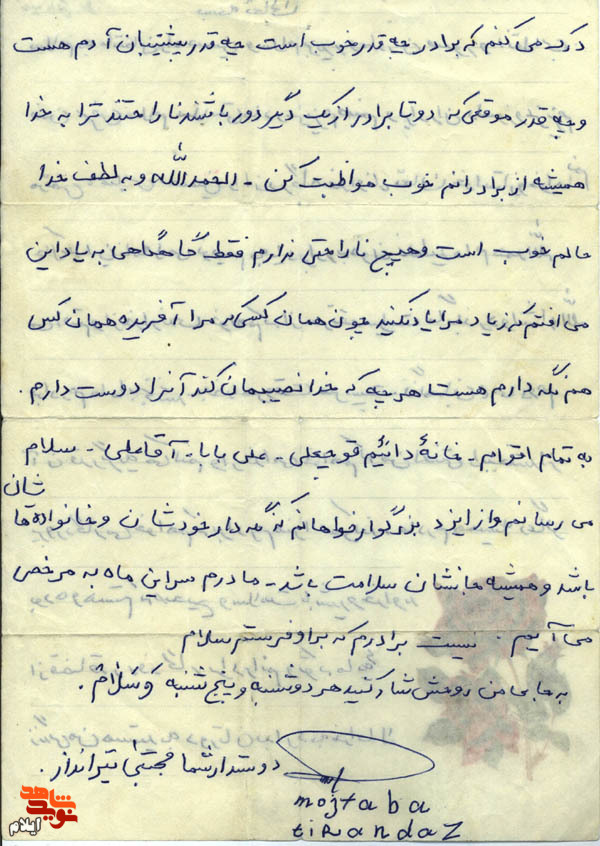 درک می کنم که برادر چه قدر خوب است چه قدر پشتیبان آدم هست
و چه قدر موقعی که دو تا برادر از یک دیگر دور باشند ناراحتند ترا به خدا
همیشه از برادرانم خوب مواظبت کن - الحمد الله و به لطف خدا
حالم خوب است و هیچ ناراحتی ندارم فقط گاهگاهی به یاد این
می افتم که زیاد مرا یاد نکنید چون همان کسی که مرا آفریده همان کس
هم نگه دارم هست هر چه که خدا نصیبمان کند آنرا دوست دارم .
به تمام اقوام - خانهٔ دائیم قوچعلی - علی بابا - آقا علی - سلام
می رسانم و از ایزد بزرگوار خواهانم که نگه دار خودشان و خانواده ها
شان
باشد و همیشه جانشان سلامت باشد - مادرم سر این ماه به مرخصی
می آییم . نیست برادرم که بر او فرستم سلام
به جای من رویش نثار کنید هر دوشنبه و پنج شنبه
دوستدار شما مجتبی تیرانداز .
mojtaba
tiRandaZ
نوید شاهد
ایلام